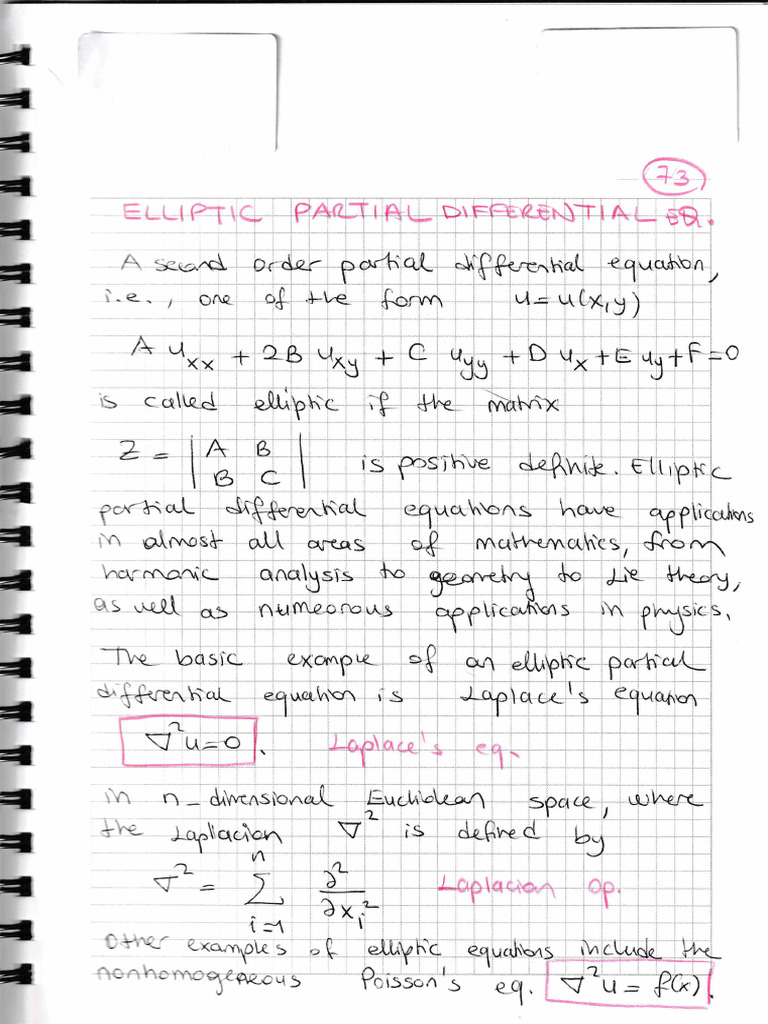 73
ELLIPTIC PARTIAL DIFFERENTIAL EQ.
A second order partial differential equation,
i.e., one of the form u = u(x,y)
A u_xx + 2B u_xy + C u_yy + D u_x + E u_y + F = 0
is called elliptic if the matrix
Z = | A B |
| B C | is positive definite. Elliptic
partial differential equations have applications
in almost all areas of mathematics, from
harmonic analysis to geometry to Lie theory,
as well as numeorous applications in physics.
The basic example of an elliptic partial
differential equation is Laplace's equation
∇²u=0. Laplace's eq.
in n-dimensional Euclidean space, where
the Laplacian ∇² is defined by
∇² = ∑_{i=1}^{n} ∂²/∂x_i² Laplacian op.
Other examples of elliptic equations include the
nonhomogeneous Poisson's eq. ∇²u = f(x).